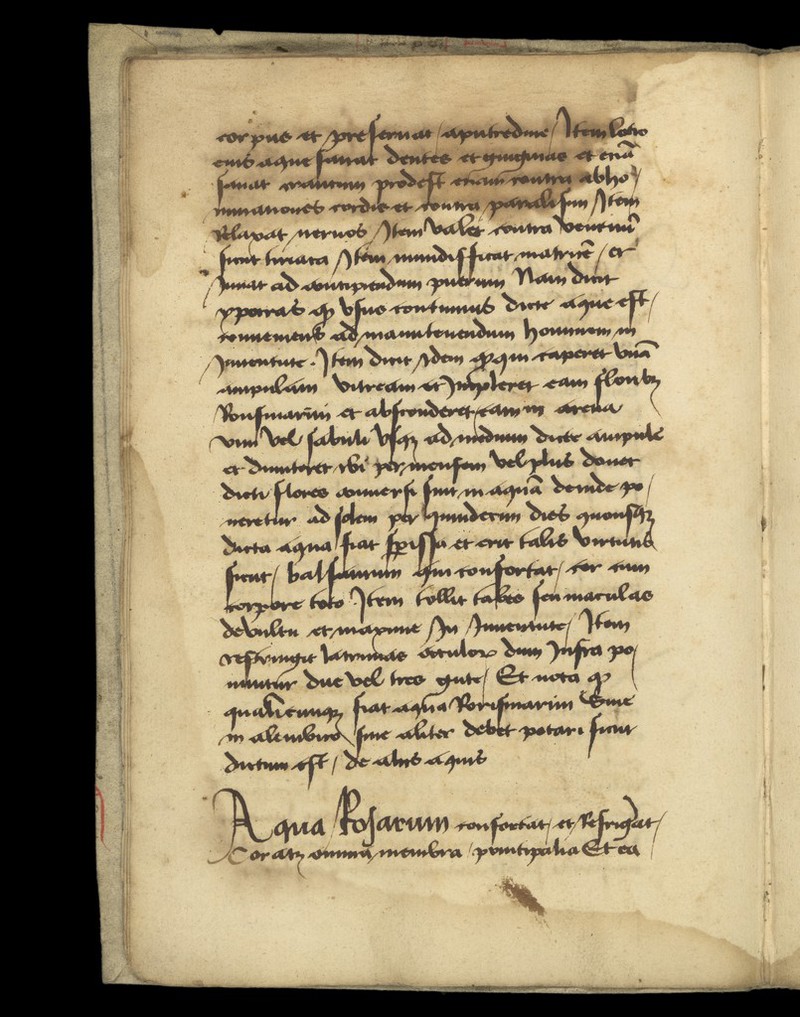 corpus et preseruat / aputredine / Item lotio
eius aque sanat dentes et gingiuas et eciā
sanat prodest eciam contra abho/
minationes cordis et contra paralisim / Item
Relaxat neruos / Item valet contra venenū
sicut tiriaca / Item mundifficat matricē / et
Juuat ad concipiendum puerum Nam dicit
ypocras ꝙ vsus continuus dicte aque est /
conueniens ad manutenendum hominem in
Juuentute . Item dicit idem ꝙ qui caperet vnā
ampulam vitream et Jmpleret eam floribꝫ
Rorismarini et absconderet eam in arena
vini vel sabuli vsqꝫ ad medium dicte ampule
et dimiteret ibi per mensem vel plus donec
dicti flores conuersi sint in aquā deinde po/
neretur ad solem per quindecim dies quousqꝫ
dicta aqua fiat spissa et erit talis virtutis
sicut / balsamum qui confortat / cor cum
corpore toto . Item tollit tabes seu maculas
de vultu et maxime Jn Juuentute / Item
restringit latrimas occuloꝝ dum Jnfra po/
nuntur due vel tres gute / Et nota ꝙ
fiat aqua Rorismarini siue
in alembico siue aliter debet potari sicut
dictum est / de aliis aquis
Aqua Rosarum confortat / et Refrigerat /
Cor atꝫ omnia membra / principalia Et ea